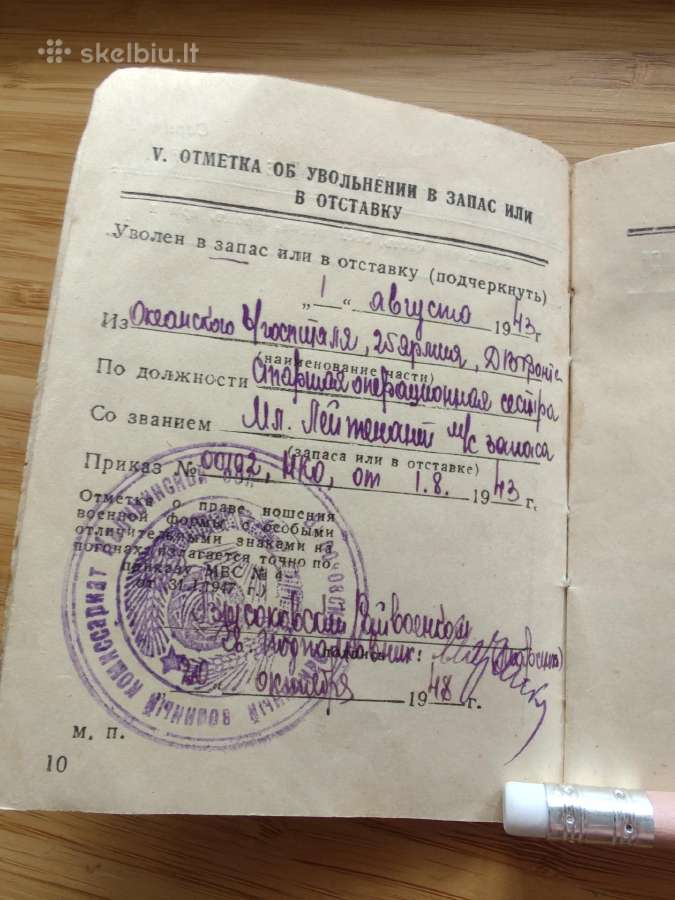 skelbiu.lt
V. ОТМЕТКА ОБ УВОЛЬНЕНИИ В ЗАПАС ИЛИ
В ОТСТАВКУ
Уволен в запас или в отставку (подчеркнуть)
„ 1 “ августа 1943 г.
Из Океанского в/госпиталя, 25 Армия, ДВ фронта
(наименование части)
По должности Старшая операционная сестра
Со званием Мл. Лейтенант м/с запаса
(запаса или в отставке)
Приказ № 00192, НКО, от 1.8. 1943 г.
Отметка о праве ношения
военной формы с особыми
отличительными знаками на
погонах излагается точно по
приказу МВС № 4
от 31.1.1947 г.)
Райвоенком
Подполковник:
подпись
20 „ октября 1948 г.
М. П.
10
ВОЕННЫЙ КОМИССАРИАТ